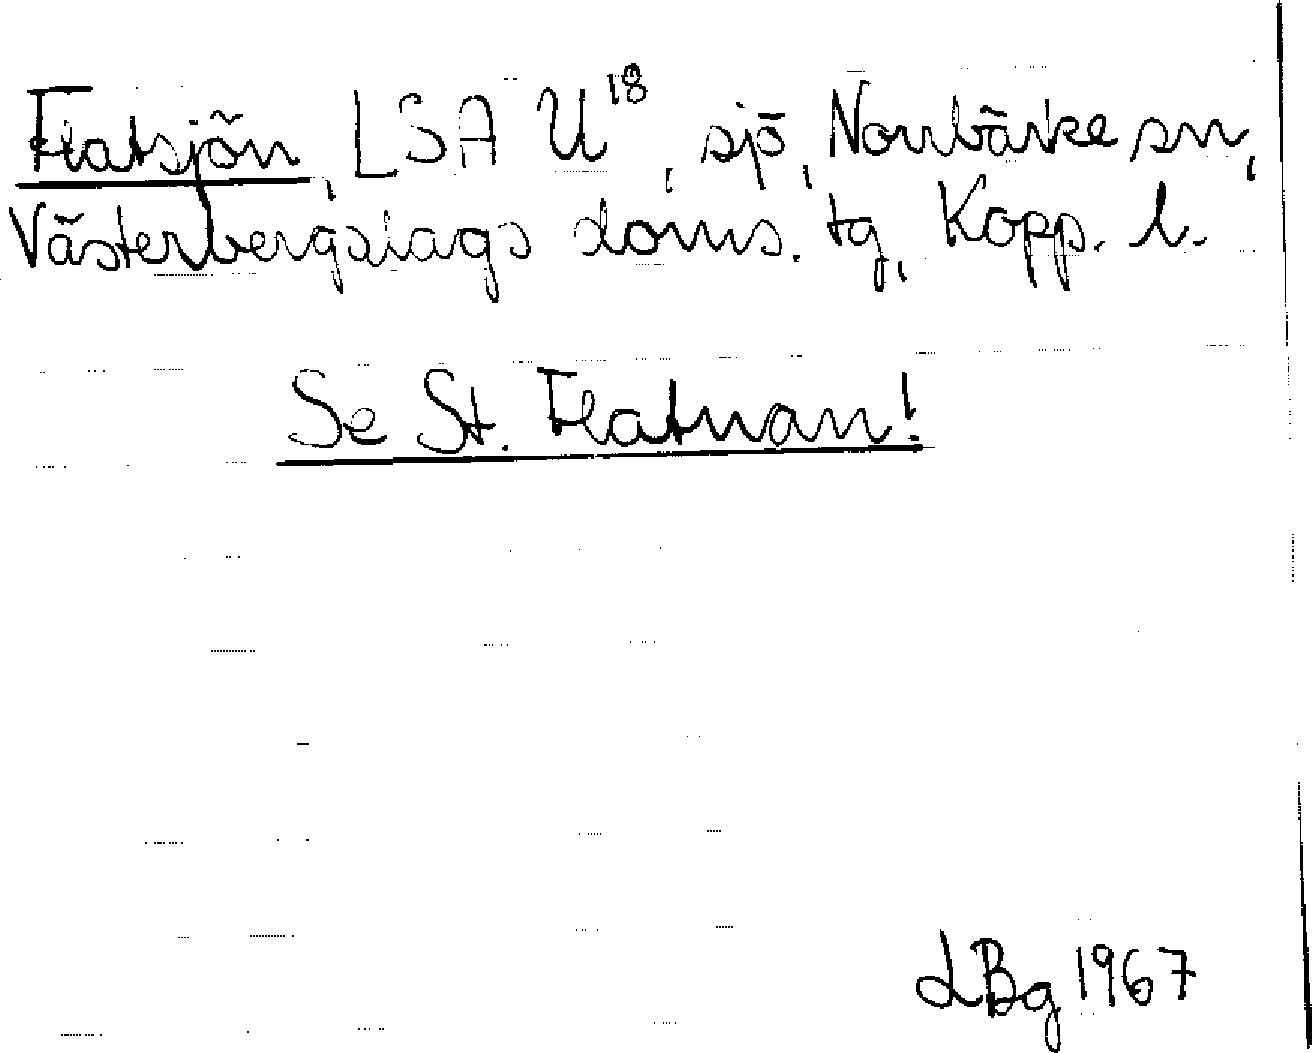 Flatsjön, LSA U¹⁸, sjö, Norrbärke sn,
Västerbergslags doms. tg, Kopp. l.
Se St. Flatnan!
LBg 1967